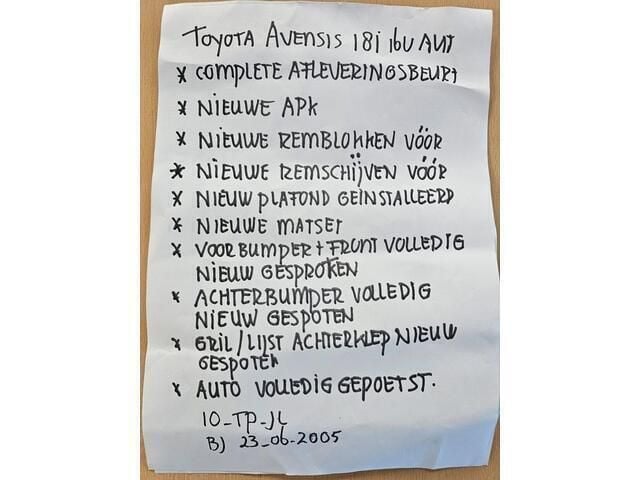 TOYOTA AVENSIS 18i 16V AUT
* COMPLETE AFLEVERINGSBEURT
* NIEUWE APK
* NIEUWE REMBLOKKEN VÓÓR
* NIEUWE REMSCHIJVEN VÓÓR
* NIEUW PLAFOND GEINSTALLEERD
* NIEUWE MATSET
* VOORBUMPER + FRONT VOLLEDIG
NIEUW GESPROKEN
* ACHTERBUMPER VOLLEDIG
NIEUW GESPOTEN
* GRIL/LIJST ACHTERKLEP NIEUW
GESPOTEN
* AUTO VOLLEDIG GEPOETST.
10-TP-JL
BJ 23-06-2005